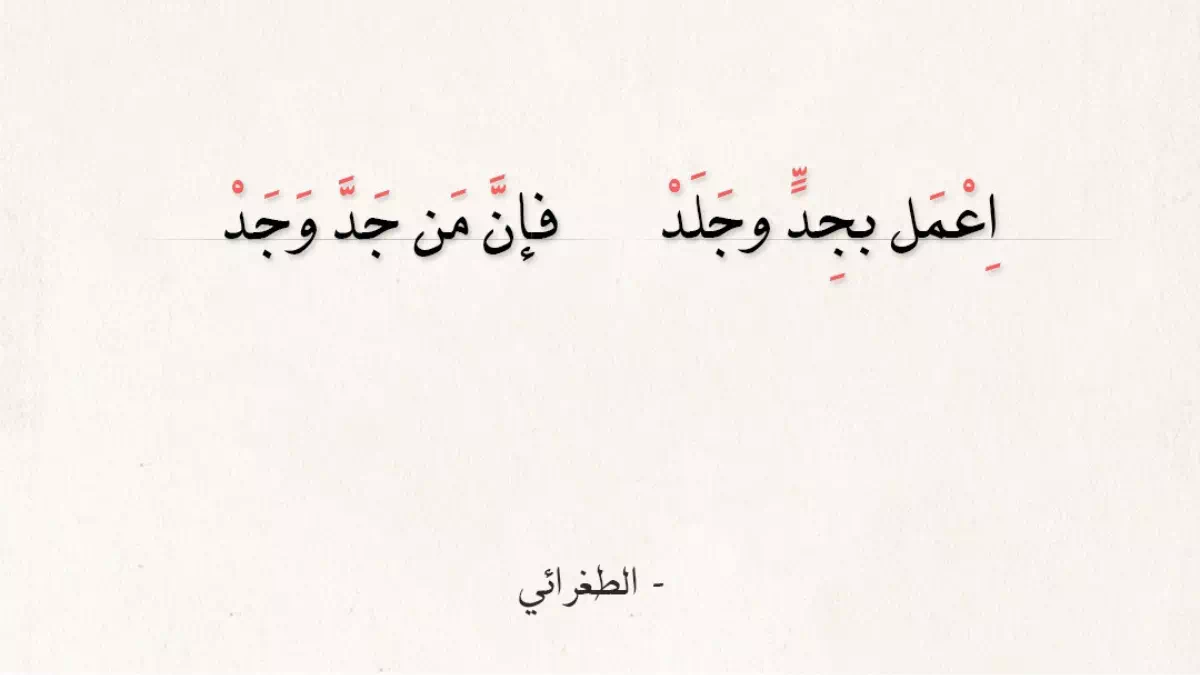 اِعْمَل بجِدٍّ وجَلَدْ فإنَّ مَن جَدَّ وَجَدْ
- الطغرائي